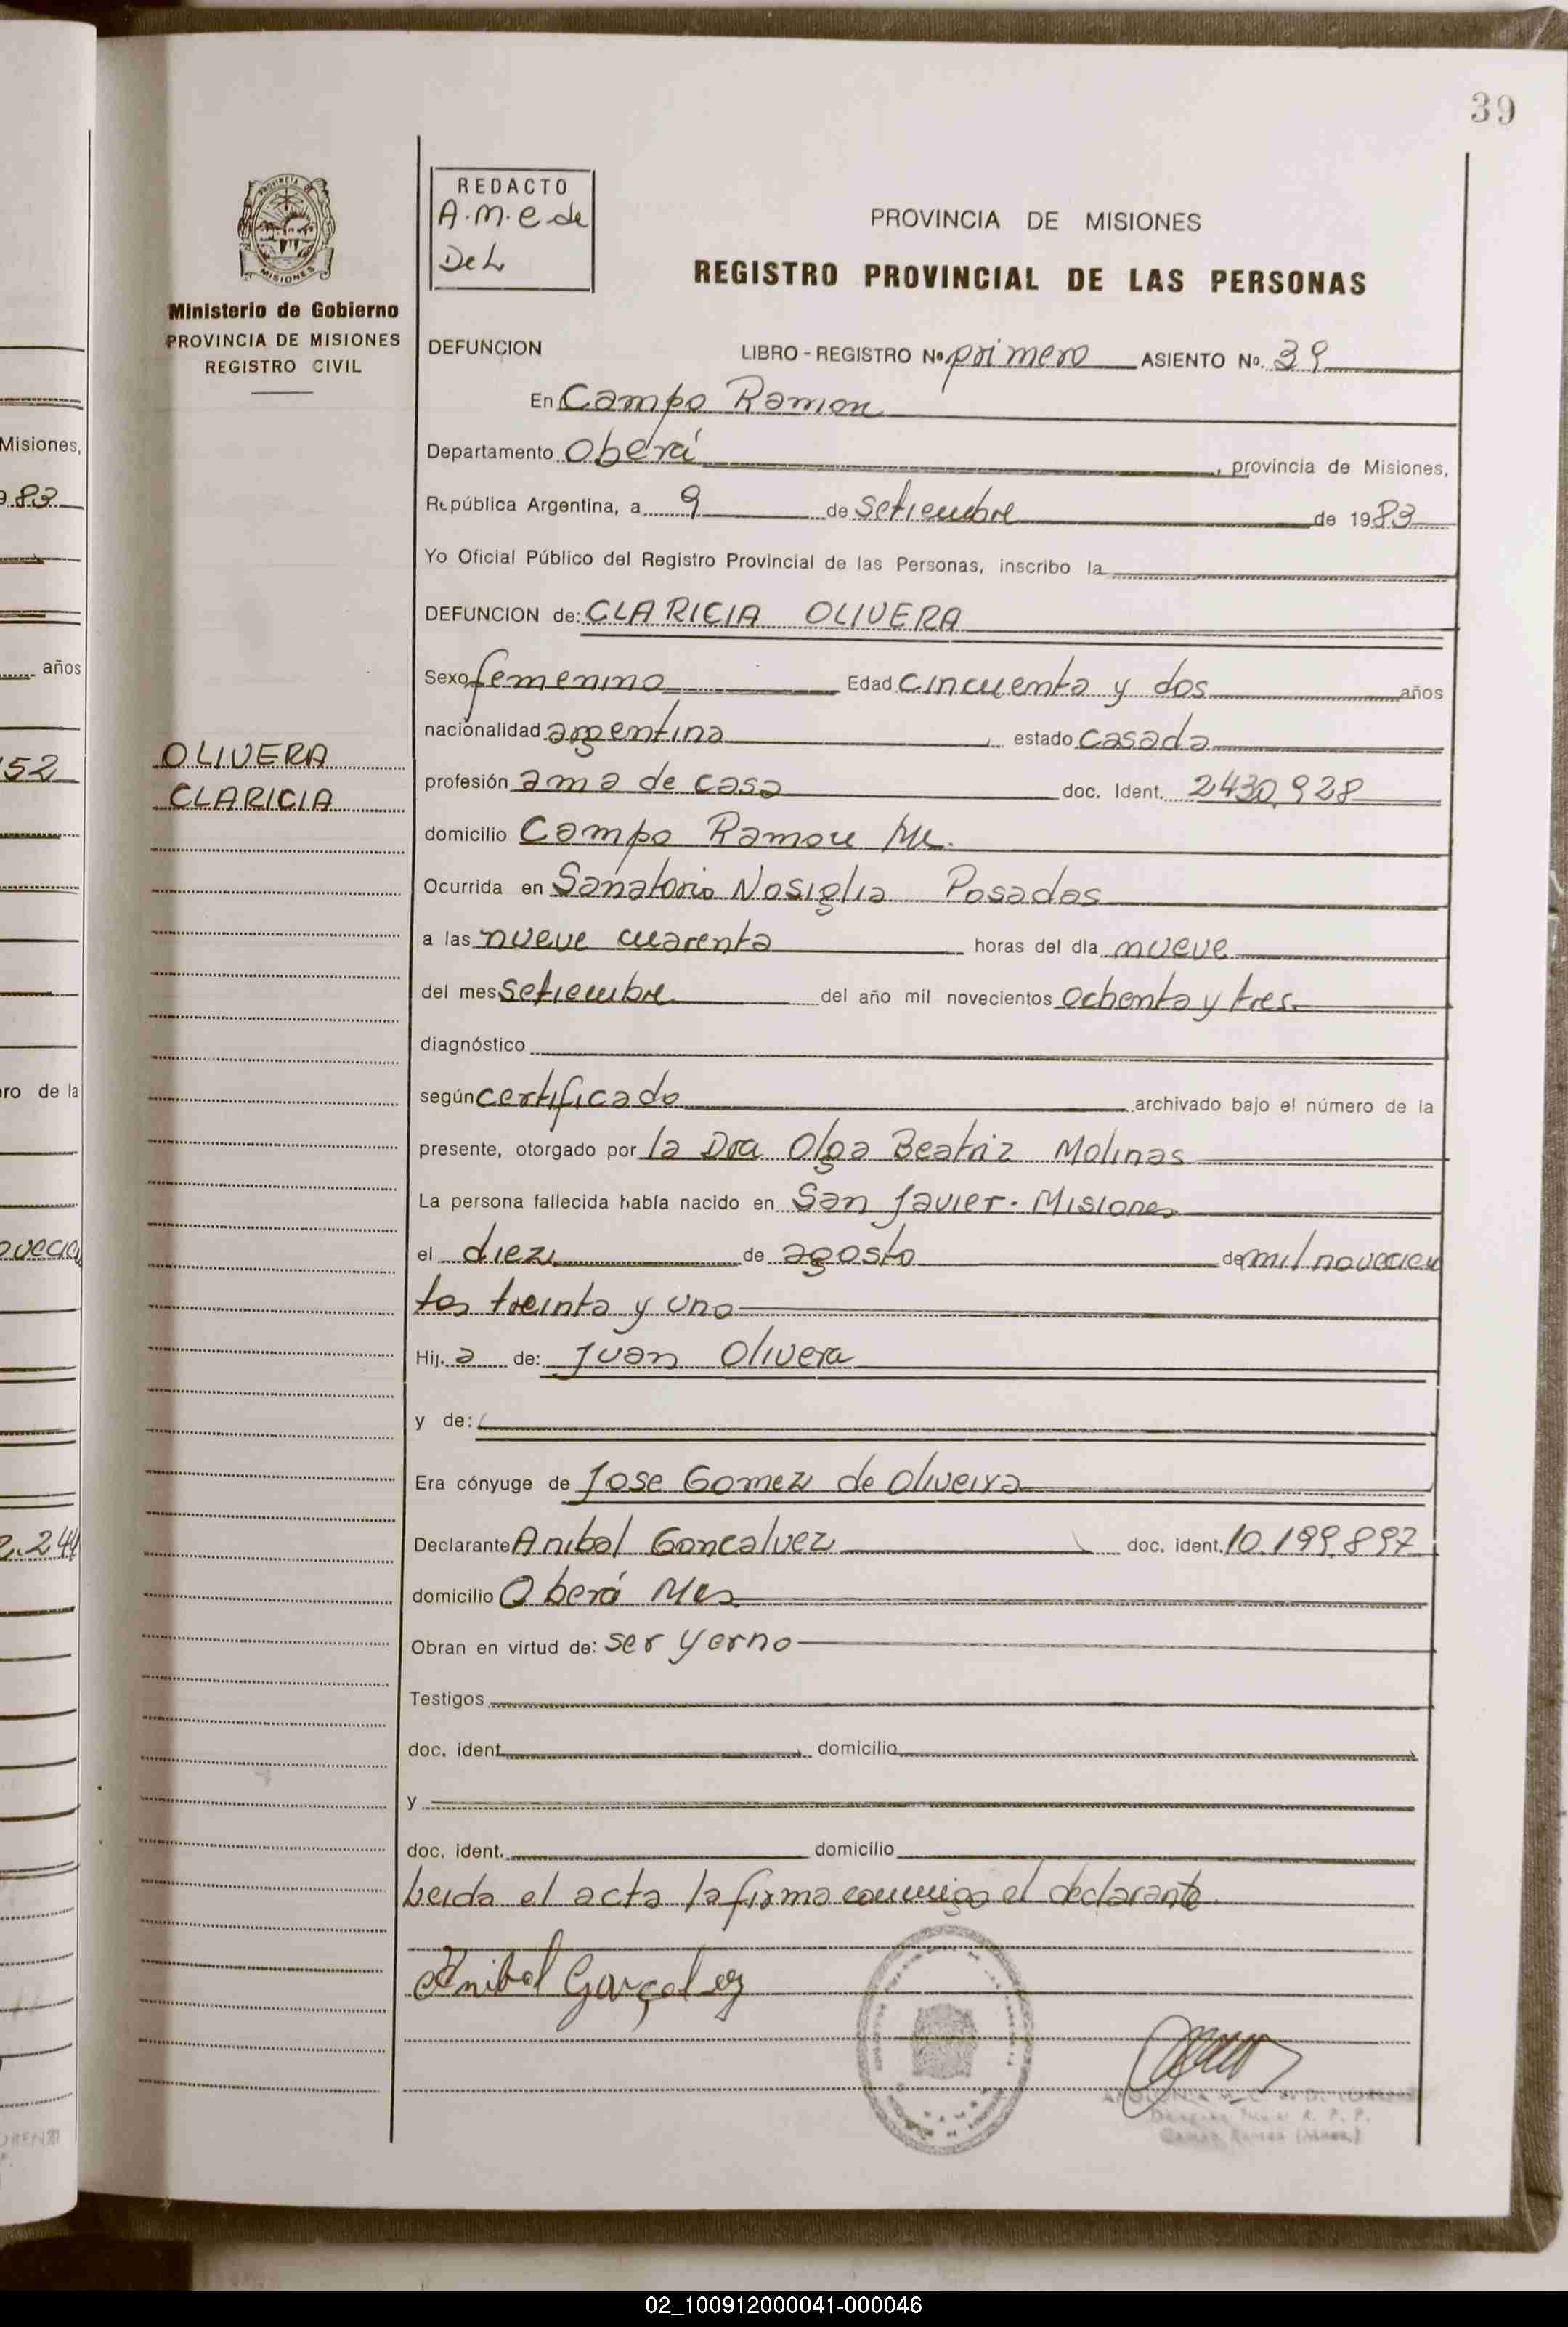 39
REDACTO
A.M.C de
De L
PROVINCIA DE MISIONES
REGISTRO PROVINCIAL DE LAS PERSONAS
PROVINCIA
MISIONES
Ministerio de Gobierno
PROVINCIA DE MISIONES
REGISTRO CIVIL
DEFUNCION LIBRO - REGISTRO Nº primero ASIENTO Nº. 39
En Campo Ramon
Departamento Oberá, provincia de Misiones,
República Argentina, a 9 de Setiembre de 1983
Yo Oficial Público del Registro Provincial de las Personas, inscribo la
DEFUNCION de: CLARICIA OLIVERA
Sexo femenino Edad cincuenta y dos años
nacionalidad argentina estado casada
OLIVERA
CLARICIA
profesión ama de casa doc. Ident. 2430.928
domicilio Campo Ramon
Ocurrida en Sanatorio Nosiglia Posadas
a las nueve cuarenta horas del día nueve
del mes Setiembre del año mil novecientos ochenta y tres
diagnóstico
según certificado archivado bajo el número de la
presente, otorgado por la Dra Olga Beatriz Molinas
La persona fallecida había nacido en San Javier - Misiones
el diez de agosto de mil novecien
tos treinta y uno
Hij. a de: Juan Olivera
y de:
Era cónyuge de Jose Gomez de Oliveira
Declarante Anibal Goncalvez doc. ident. 10.199.897
domicilio Oberá Mes
Obran en virtud de: ser yerno
Testigos
doc. ident. domicilio
y
doc. ident. domicilio
Leida el acta la firma conmigo el declarante.
Anibal Gonçalvez
Misiones,
983
años
52
ro de la
ovecien
2.244
02_100912000041-000046